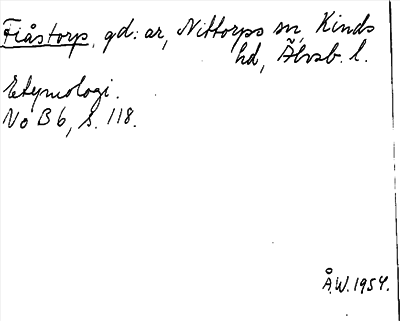 Fiåstorp, gd: ar, Nittorps sn, Kinds
hd, Älvsb. l.
Etymologi.
NoB 6, s. 118.
Å.W. 1954.